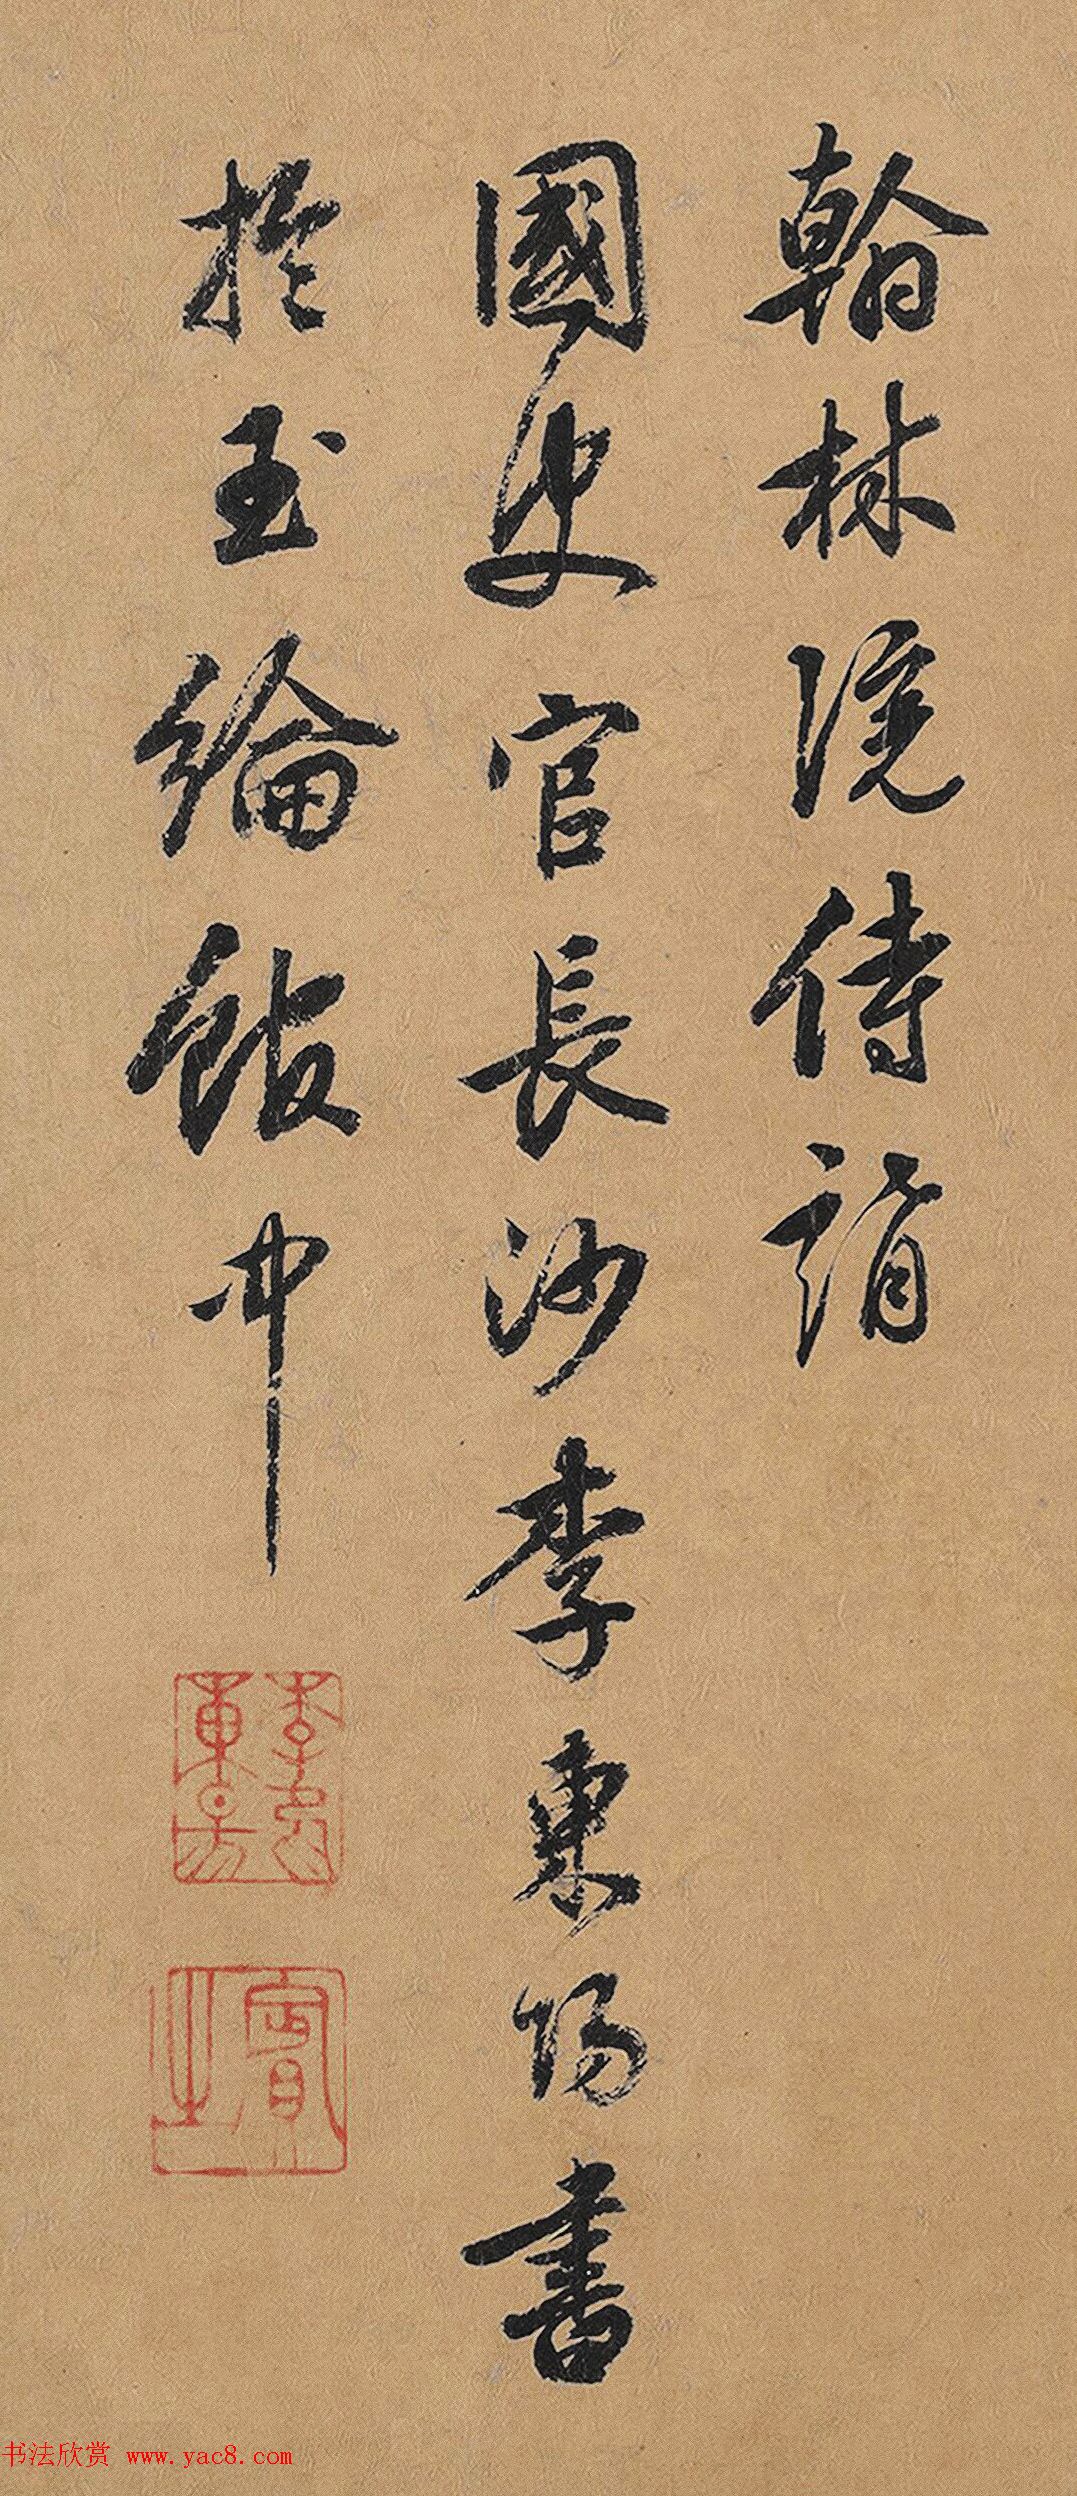 翰林院侍讀
國史官長沙李東陽書
於玉綸館中
李東陽印
賓之
书法欣赏 www.yac8.com